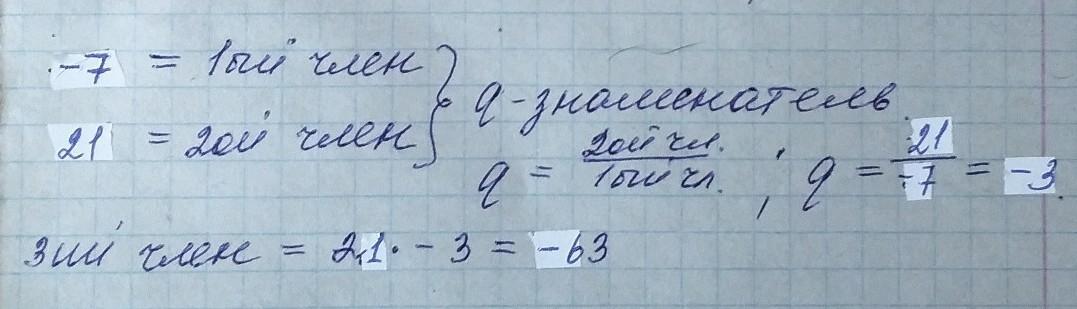 -7 = 1ый член
21 = 2ой член
q - знаменатель
q = 2ой чл. / 1ый чл. ; q = 21 / -7 = -3
3ий член = 21 · - 3 = -63